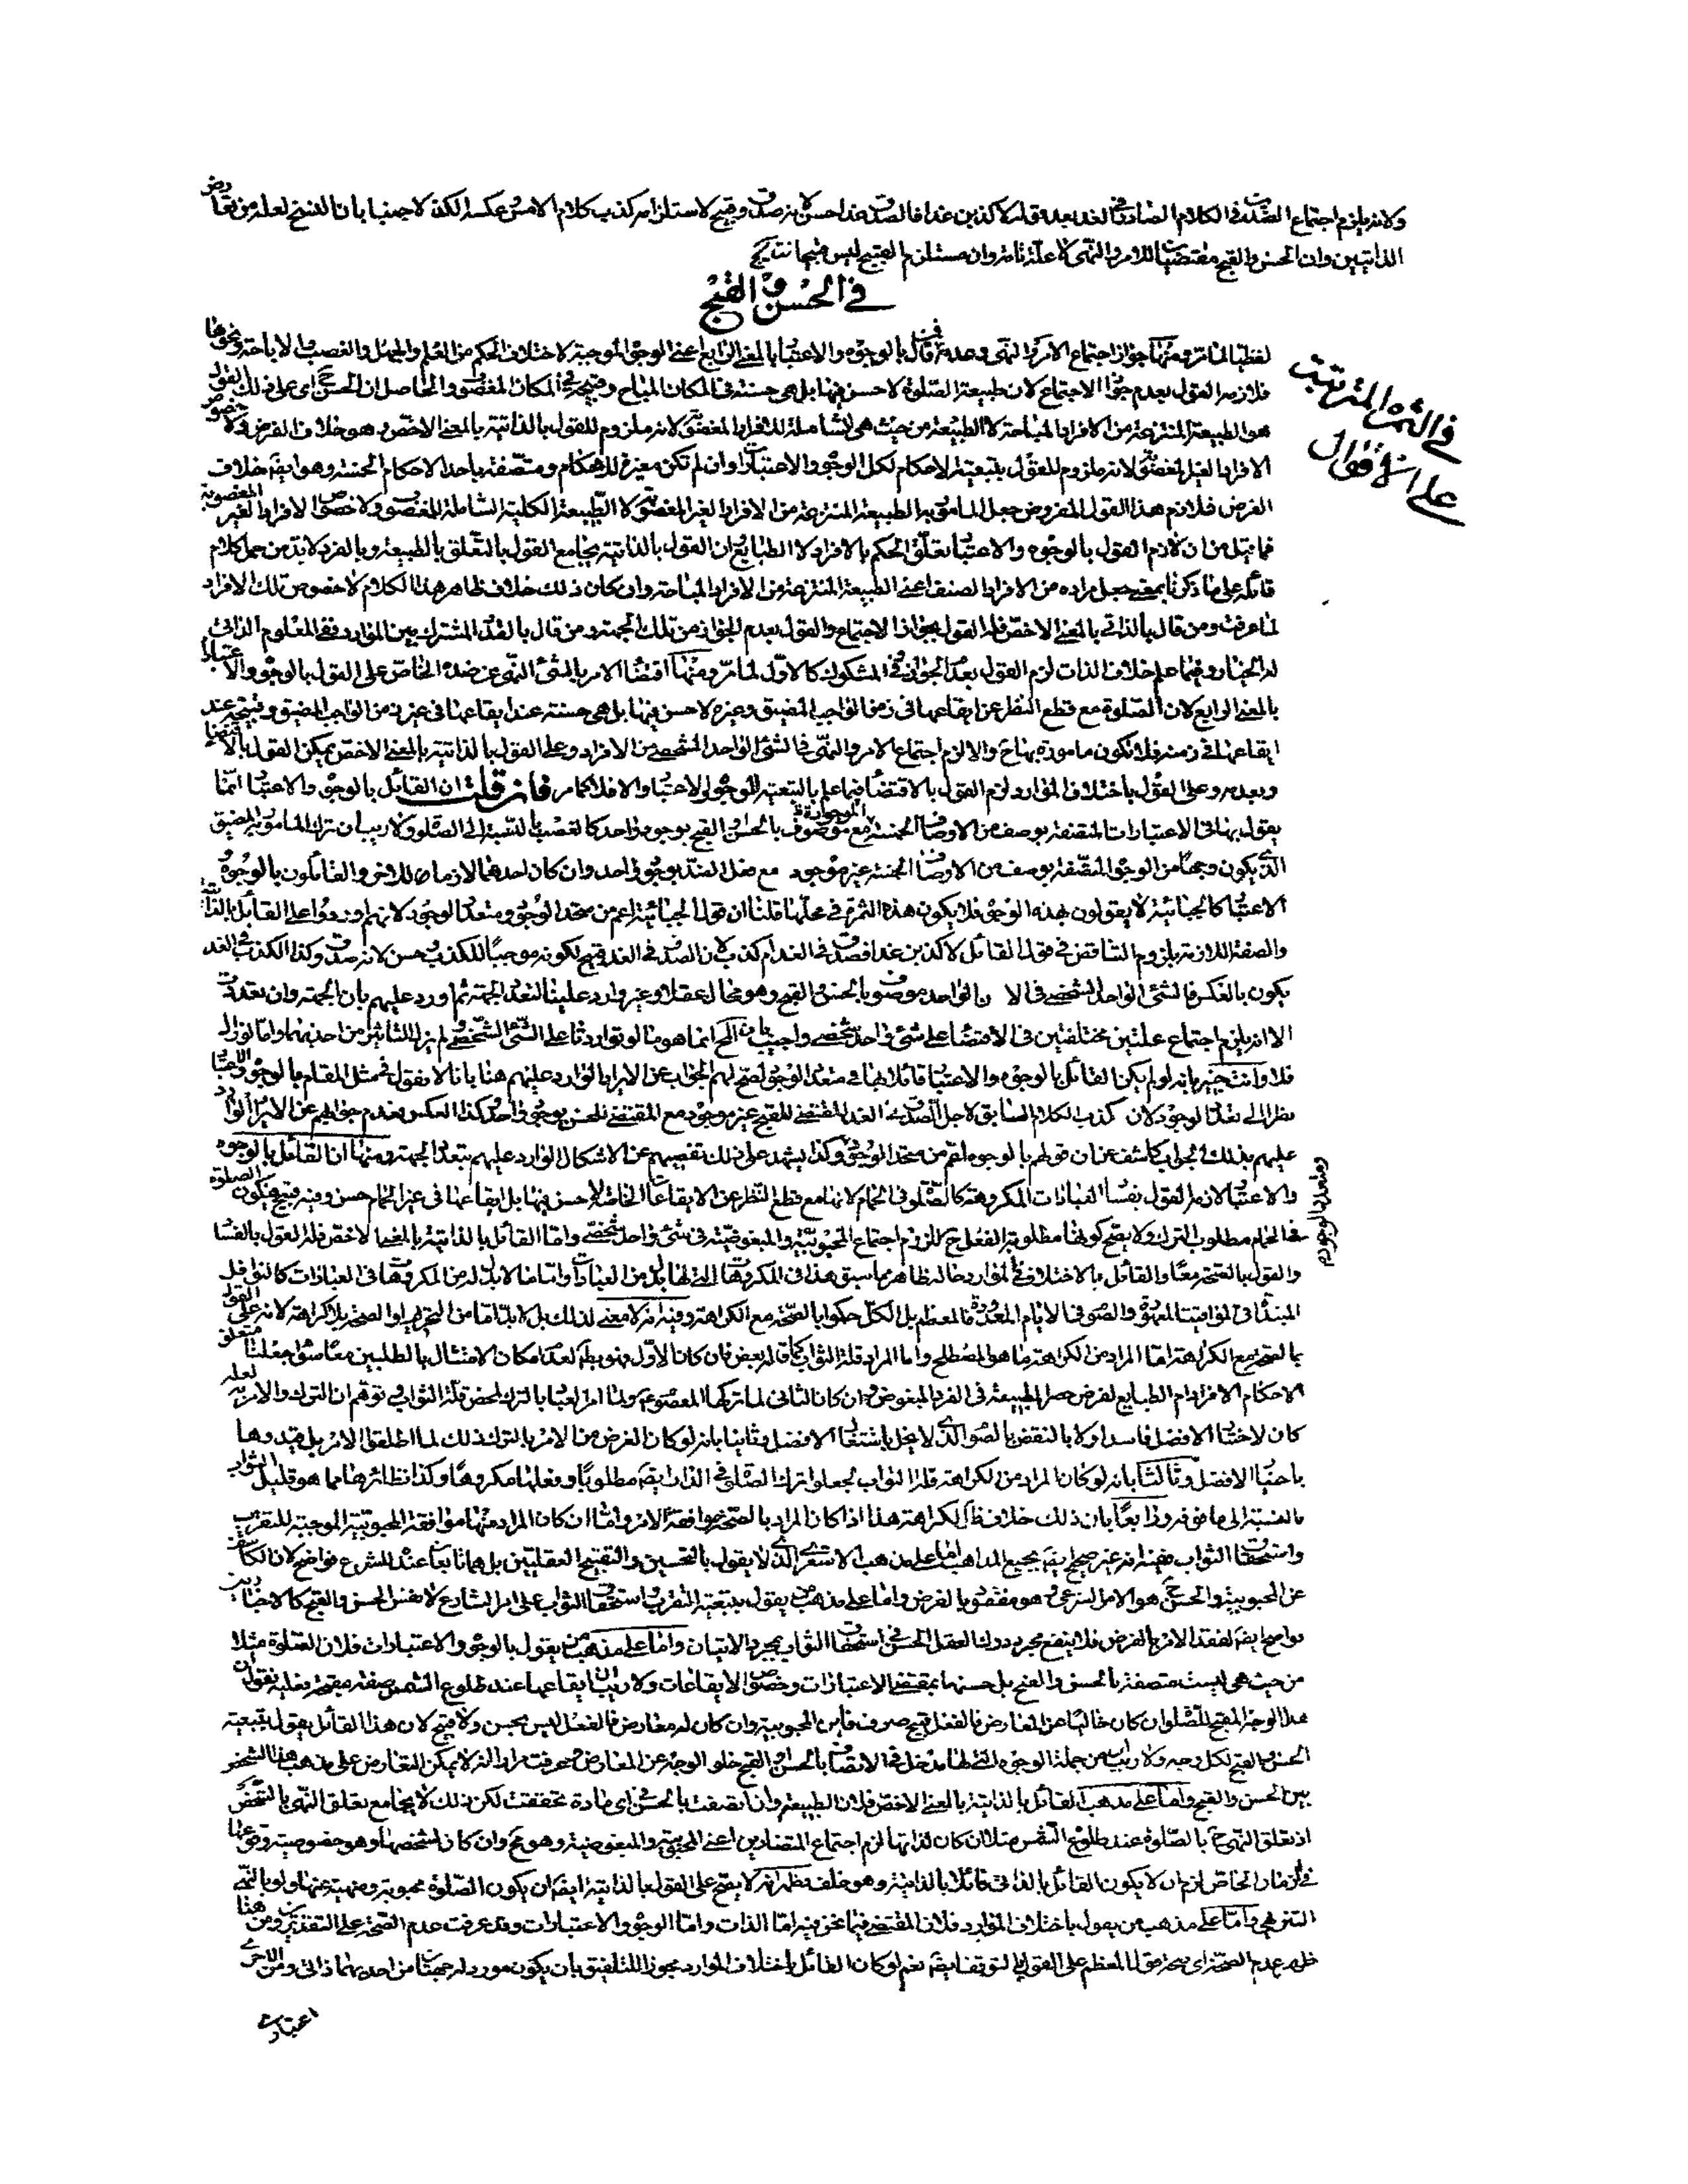 ولانه يلزم اجتماع الضدين في الكلام الصادق في الغد بعد قوله لاكذبن غدا فالصدق غدا حسن لانه صدق وقبيح لاستلزامه كذب كلام الامس وعكسه الكذب لاجيبنا بان النسخ لعله من تعارض
الذاتيين وان الحسن والقبح مقتضيات للامر والنهى لا علة تامة وان مستلزم القبيح ليس قبيحا
في الحسن والقبح
في الثمرات المترتبة
على الاقوال
ومنها جواز اجتماع الامر والنهى وعدمه فمن قال بالوجوه والاعتبار بالمعنى الرابع اعنى الوجوه الموجبة لاختلاف الحكم من العلم والجهل والغصب والاباحة ونحوها
فلازمه القول بعدم جواز الاجتماع لان طبيعة الصلوة لا حسن فيها بل هى حسنة في المكان المباح وقبيحة في المكان المغصوب والحاصل ان الحسن على ذلك القول
هو الطبيعة المنتزعة من الافراد المباحة لا الطبيعة من حيث هى الشاملة للافراد المغصوبة لانه ملزوم للقول بالذاتية بالمعنى الاخص وهو خلاف الفرض ولا خصوص
الافراد الغير المغصوبة لانه ملزوم للقول بتبعية الاحكام لكل الوجوه والاعتبارات وان لم تكن مغيرة للاحكام ومتصفة باحد الاحكام الخمسة وهو ايضا خلاف
الفرض فلازم هذا القول المفروض جعل المامور به الطبيعة المنتزعة من الافراد الغير المغصوبة لا الطبيعة الكلية الشاملة للمغصوب ولا خصوص الافراد الغير المغصوبة
فما قيل من ان لازم القول بالوجوه والاعتبار تعلق الحكم بالافراد لا الطبايع وان القول بالذاتية يجامع القول بالتعلق بالطبيعة وبالفرد لابد من حمل كلام
قائله على ما ذكرنا بمعنى جعل مراده من الافراد الصنف اعنى الطبيعة المنتزعة من الافراد المباحة وان كان ذلك خلاف ظاهر هذا الكلام لا خصوص تلك الافراد
لما عرفت ومن قال بالذاتى بالمعنى الاخص فله القول بجواز الاجتماع والقول بعدم الجواز من تلك الجهة ومن قال بالقدر المشترك بين الموارد ففى المعلوم الذاتى
له الخيار وفيما علم خلاف الذات لزم القول بعدم الجواز وفى المشكوك كالاول لما مر ومنها اقتضاء الامر بالشئ النهى عن ضده الخاص على القول بالوجوه والاعتبار
بالمعنى الرابع لان الصلوة مع قطع النظر عن ايقاعها في زمن الواجب المضيق وغيره لا حسن فيها بل هى حسنة عند ايقاعها في غير زمن الواجب المضيق وقبيحة عند
ايقاعها في زمنه فلا تكون مامورة بها ح والا لزم اجتماع الامر والنهى في الشئ الواحد الشخصى من الافراد وعلى القول بالذاتية بالمعنى الاخص يمكن القول بالاقتضاء
وبعدمه وعلى القول باختلاف الموارد لزم القول بالاقتضاء فيما علم بالتبعية للوجوه والاعتبار والا فلا كما مر فان قلت ان القائل بالوجوه والاعتبار انما
يقول بها في الاعتبارات المتصفة بوصف من الاوصاف الخمسة الموجودة مع موصوف بالحسن والقبح بوجود واحد كالغصب بالنسبة الى الصلوة ولا ريب ان ترك المامور به المضيق
الذى يكون وجها من الوجوه المتصفة بوصف من الاوصاف الخمسة غير موجود مع فعل الضد بوجود واحد وان كان احدهما لازما للاخر والقائلون بالوجوه و
الاعتبار كالجبائية لا يقولون بهذه الوجوه فلا يكون هذه الثمرة في محلها قلنا ان قول الجبائية اعم من متحد الوجود ومتعدد الوجود لانهم اوردوا على القائل بالذات
والصفة اللازمة بلزوم التناقض في قول القائل لاكذبن غدا فصدق في الغد ام كذب لان الصدق في الغد قبيح لكونه موجبا للكذب حسن لانه صدق وكذا الكذب في الغد
يكون بالعكس فالشئ الواحد الشخصى في الان الواحد موصوف بالحسن والقبح وهو محال عقلا وغير وارد علينا لتعدد الجهة ثم اورد عليهم بان الجهة وان تعددت
الا انه يلزم اجتماع علتين مختلفتين في الاقتضاء على شئ واحد شخصى واجيب بان المح انما هو ما لو تواردتا على الشئ الشخصى ولم يزل التاثير من احديهما واما لو زال
فلا وانت خبير بانه لو لم يكن القائل بالوجوه والاعتبار قائلا بها في متعدد الوجود لصح لهم الجواب عن الايراد الوارد عليهم هنا بانا لا نقول في مثل المقام بالوجوه والاعتبار
نظرا الى تعدد الوجود لان كذب الكلام السابق لاجل الصدق في الغد المقتضى للقبح غير موجود مع المقتضى للحسن بوجود واحد وكذا العكس فعدم جوابهم عن الايراد الوارد
عليهم بذلك الجواب كاشف عن ان قولهم بالوجوه اعم من متحد الوجود وكذا يشهد على ذلك تفصيهم عن الاشكال الوارد عليهم بتعدد الجهة ومنها ان القائل بالوجوه
ومتعدد الوجود
والاعتبار لازمه القول بفساد العبادات المكروهة كالصلوة في الحمام لانها مع قطع النظر عن الايقاعات الخاصة لا حسن فيها بل ايقاعها في غير الحمام حسن وفيه قبيح فيكون الصلوة
في الحمام مطلوب الترك ولا يصح كونها مطلوبة الفعل ح للزوم اجتماع المحبوبية والمبغوضية في شئ واحد شخصى واما القائل بالذاتية بالمعنى الاخص فله القول بالفساد
والقول بالصحة معا والقائل بالاختلاف في الموارد حاله ظاهر مما سبق هذا في المكروهات التى لها بدل من العبادات واما ما لا بدل له من المكروهات في العبادات كالنوافل
المبتداة في المواقيت المعهودة والصوم في الايام المعدودة فالمعظم بل الكل حكموا بالصحة مع الكراهة وفيه انه لا معنى لذلك بل لابد اما من التحريم او الصحة بلا كراهة لانه على القول
بالصحة مع الكراهة اما المراد من الكراهة ما هو المصطلح واما المراد قلة الثواب كما قاله بعض فان كان الاول فهو باطل لعدم امكان الامتثال بالطلبين معا سواء جعلنا متعلق
الاحكام الافراد ام الطبايع لفرض حصر الطبيعة في الفرد المبغوض وان كان الثانى لما تركها المعصوم ع ولما امر العباد بالترك لمحض قلة الثواب وتوهم ان الترك والامر به لعله
كان لاختيار الافضل فاسد اولا بالنقض بالصوم الذى لا يخل باشتغال الافضل وثانيا بانه لو كان الغرض من الامر بالترك ذلك لما اطلقوا الامر بل قيدوها
باختيار الافضل وثالثا بانه لو كان المراد من الكراهة قلة الثواب لجعلوا ترك الصلوة في الدار ايضا مطلوبا وفعلها مكروها وكذا نظائرها مما هو قليل الثواب
بالنسبة الى ما فوقه ورابعا بان ذلك خلاف ظاهر الكراهة هذا اذا كان المراد بالصحة موافقة الامر واما ان كان المراد منها موافقة المحبوبية الموجبة للتقرب
واستحقاق الثواب ففيه انه غير صحيح ايضا بجميع المذاهب اما على مذهب الاشعرى الذى لا يقول بالتحسين والتقبيح العقليين بل هما تابعان عند الشرع فواضح لان الكاشف
عن المحبوبية والحسن ح هو الامر الشرعى وهو مفقود بالفرض واما على مذهب من يقول بتبعية التقرب واستحقاق الثواب على امر الشارع لا نفس الحسن والقبح كالاخباريين
فواضح ايضا لفقد الامر بالفرض فلا ينفع مجرد درك العقل الحسن في استحقاق الثواب بمجرد الاتيان واما على مذهب من يقول بالوجوه والاعتبارات فلان الصلوة مثلا
من حيث هى ليست متصفة بالحسن والقبح بل حسنها بمقتضى الاعتبارات وخصوص الايقاعات ولا ريب ان ايقاعها عند طلوع الشمس صفة مقبحة وعليه نقول ان
هذا الوجه المقبح للصلوة ان كان خاليا عن المعارض فالفعل قبيح صرف فاين المحبوبية وان كان له معارض فالفعل ليس بحسن ولا قبيح لان هذا القائل يقول بتبعية
الحسن والقبح لكل وجه ولا ريب ان من جملة الوجوه التى لها مدخل في الاتصاف بالحسن والقبح خلو الوجه عن المعارض وعرفت مرارا انه لا يمكن التعارض على مذهب هذا الشخص
بين الحسن والقبح واما على مذهب القائل بالذاتية بالمعنى الاخص فلان الطبيعة وان اتصفت بالحسن في اى مادة تحققت لكن ذلك لا يجامع تعلق النهى بالشخص
اذ تعلق النهى ح بالصلوة عند طلوع الشمس مثلا ان كان لذاتها لزم اجتماع المتضادين اعنى المحبوبية والمبغوضية وهو مح وان كان لشخصها وهو خصوصية وقوعها
في الزمان الخاص لزم ان لا يكون القائل بالذاتى قائلا بالذاتية وهو خلف فظهر انه لا يصح على القول بالذاتية ايضا ان يكون الصلوة محبوبة ومنهية عنها ولو بالنهى
التنزيهى واما على مذهب من يقول باختلاف الموارد فلان المقتضى فيما نحن فيه اما الذات واما الوجوه والاعتبارات وقد عرفت عدم الصحة على التقديرين ومن هنا
ظهر عدم الصحة اى صحة قول المعظم على القول بالتوقف ايضا نعم لو كان القائل باختلاف الموارد مجوزا للتلفيق بان يكون مورد له جهتان من احديهما ذاتى ومن الاخرى
اعتبارى